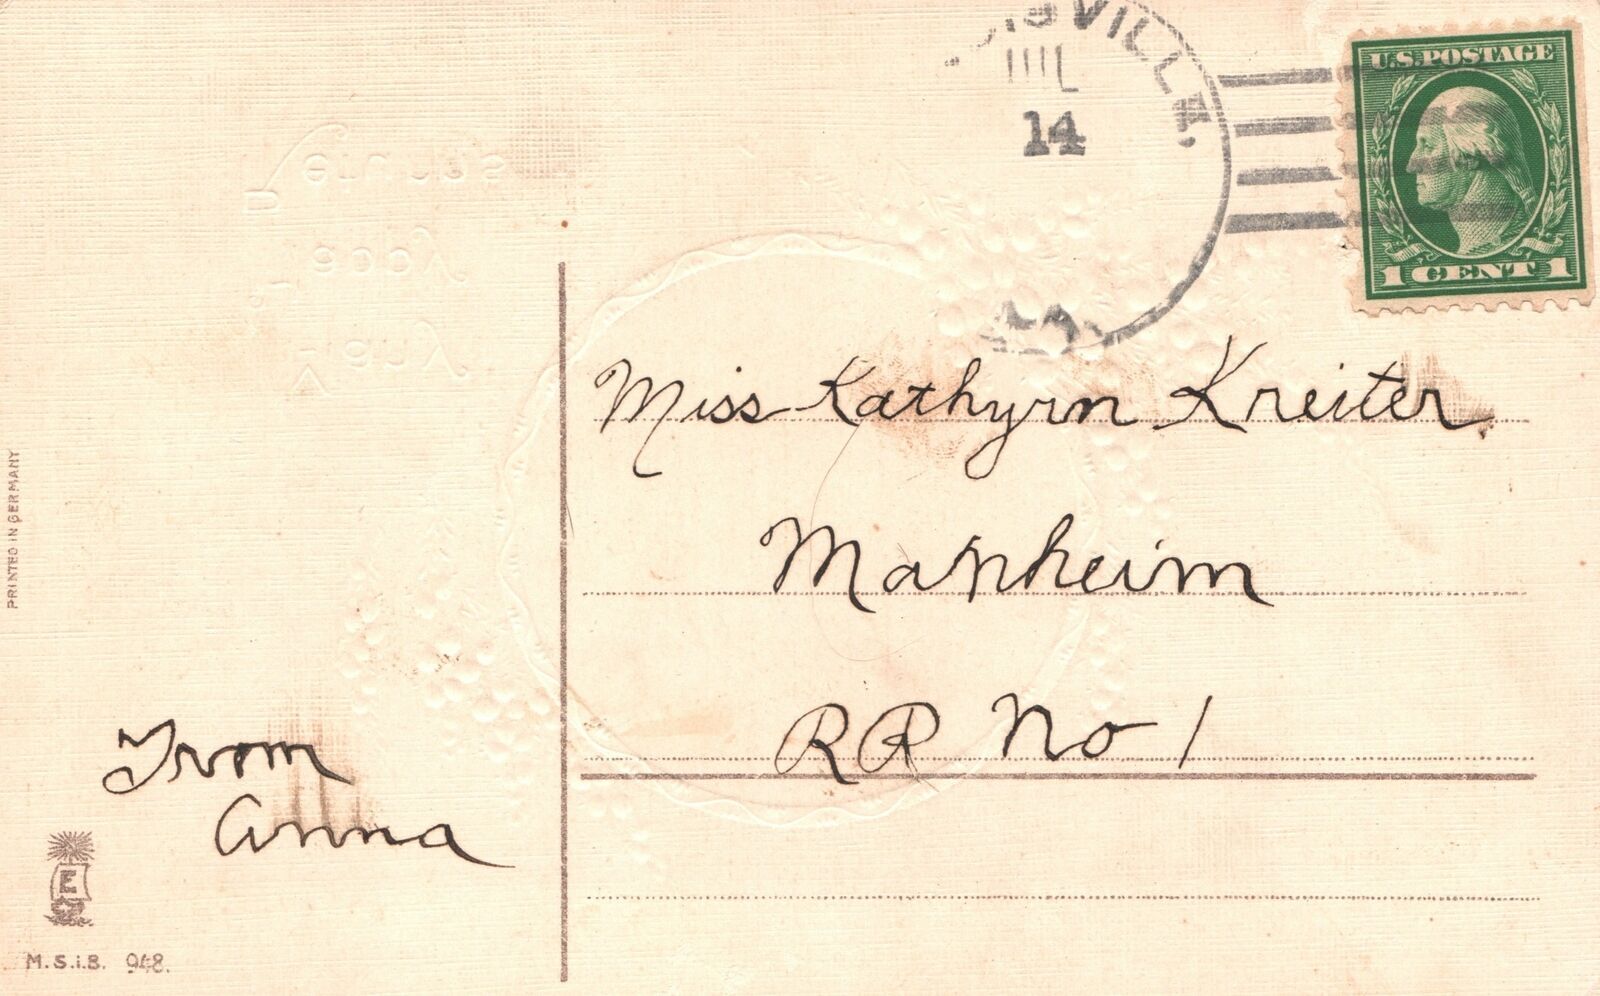 JUL
14
U.S. POSTAGE
1 CENT 1
Miss Kathyrn Kreiter
Manheim
RR No 1
From
Anna
PRINTED IN GERMANY
E
M.S.i.B. 948.